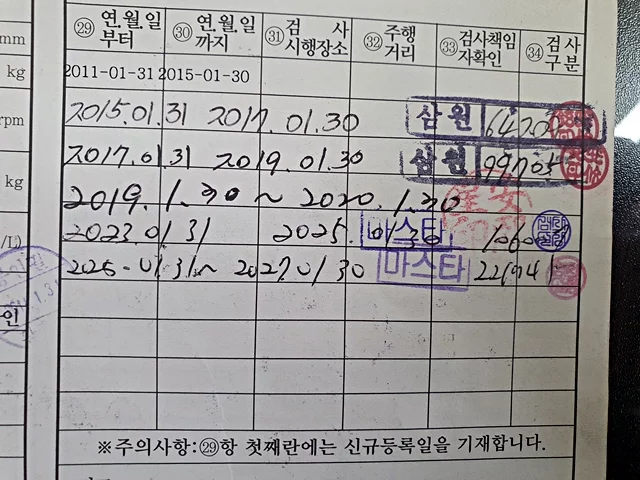 ㉙ 연.월.일 부터 ㉚ 연.월.일 까지 ㉛ 검 사 시행장소 ㉜ 주행 거리 ㉝ 검사책임 자확인 ㉞ 검사 구분
mm
kg
2011-01-31 2015-01-30
rpm
2015.01.31 2017.01.30 삼원
kg
2017.01.31 2019.01.30 삼원
2019.1.30 ~ 2020.1.30
/L)
2023.01.31 2025.01.30 마스타
2025-01.31~ 2027.01.30 마스타
인
※주의사항:㉙항 첫째란에는 신규등록일을 기재합니다.